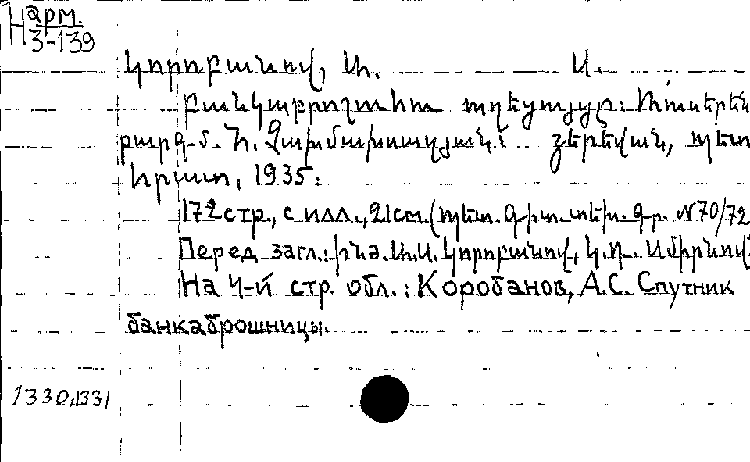 Н арм.
3-139
Կորոբանով, Ա. Ս.
Բանկաբրոշհու ուղեցույցը: Ռուսերեն
թարգմ. Հ. Չախմախսազյան: Յերեվան, պետ
հրատ, 1935:
172 стр., с илл., 21 см. (պետ. գիտ. տեխ. գր. N 70/72
Перед загл.: ինժ. Ա.Ս. Կորոբանով, Կ.Ղ. Ամիրխով
На 4-й стр. обл.: Коробанов, А.С. Спутник
банкаброшницы.
1330,1331